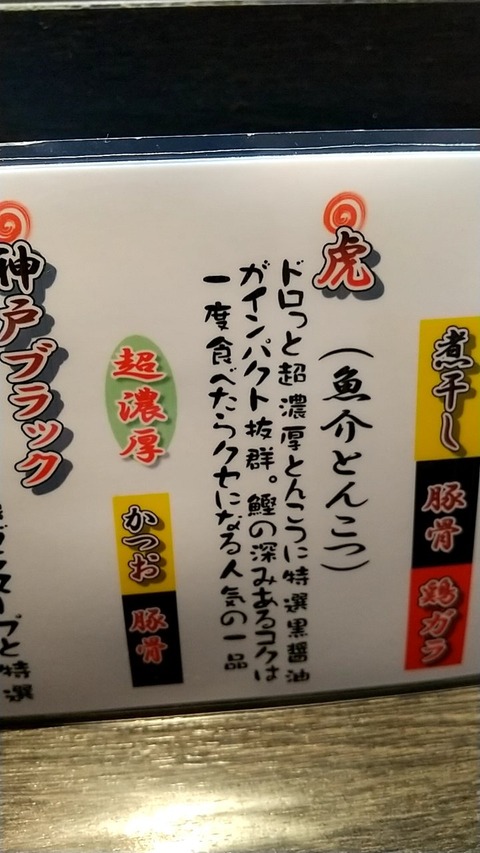 煮干し
豚骨
鶏ガラ
虎
(魚介とんこつ)
ドロっと超濃厚とんこつに特選黒醤油
がインパクト抜群。鰹の深みあるコクは
一度食べたらクセになる人気の一品
超濃厚
かつお
豚骨
神戸ブラック
スープと特選